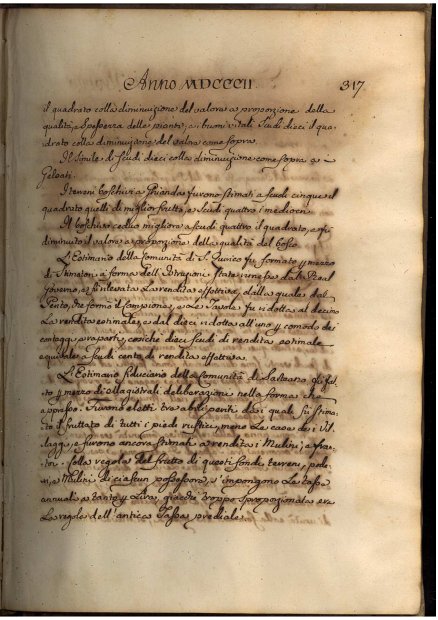 Anno MDCCCII 317
il quadrato colla diminuzione del valore a proporzione della
qualità, e spessezza delle piante, a i buoni vitati Scudi dieci il qua-
drato colla diminuzione del valore come sopra.
Il simile di Scudi dieci colla diminuzione come sopra a i
Gelsati.
I tereni boschivi a Ghianda furono stimati a scudi cinque il
quadrato quelli di miglior frutto, e Scudi quattro i mediocri.
Il boschivo ceduo migliore a scudi quattro il quadrato, e fu
diminuito il valore a proporzione della qualità del bosco.
L'Estimario della Comunità di S. Quirico fu formato p mezzo
di Stimatori a forma dell'Istruzioni state rimesse da la Real
Governo, e fu rilevata la rendita effettiva, dalla quale dal
Perito, che formò il campione, e le Tavole fu ridotta al decimo
la rendita estimale, e dal dieci ridotta all'uno p comodo dei
conteggi, e raparti, cosiche dieci scudi di rendita estimale
equivale a scudi cento di rendita effettiva.
L'Estimario fiduciario della Comunità di fu fat-
to p mezzo di Magistrali deliberazioni nella forma che
appresso. Furono eletti tra abili periti dai quali fu stima-
to il fruttato di tutti i piedi rustici, meno le case dei Vil-
laggi, e furono ancora stimati a rendita i Mulini, e frat-
toi. Colla regola del frutto di questi fondi tereni, pode-
ri, e Mulini di ciascun possessore, s'impongono le tasse
annuali a tanto p Lira, giacchè troppo sproporzionata era
la regola dell'antica tassa prediale.